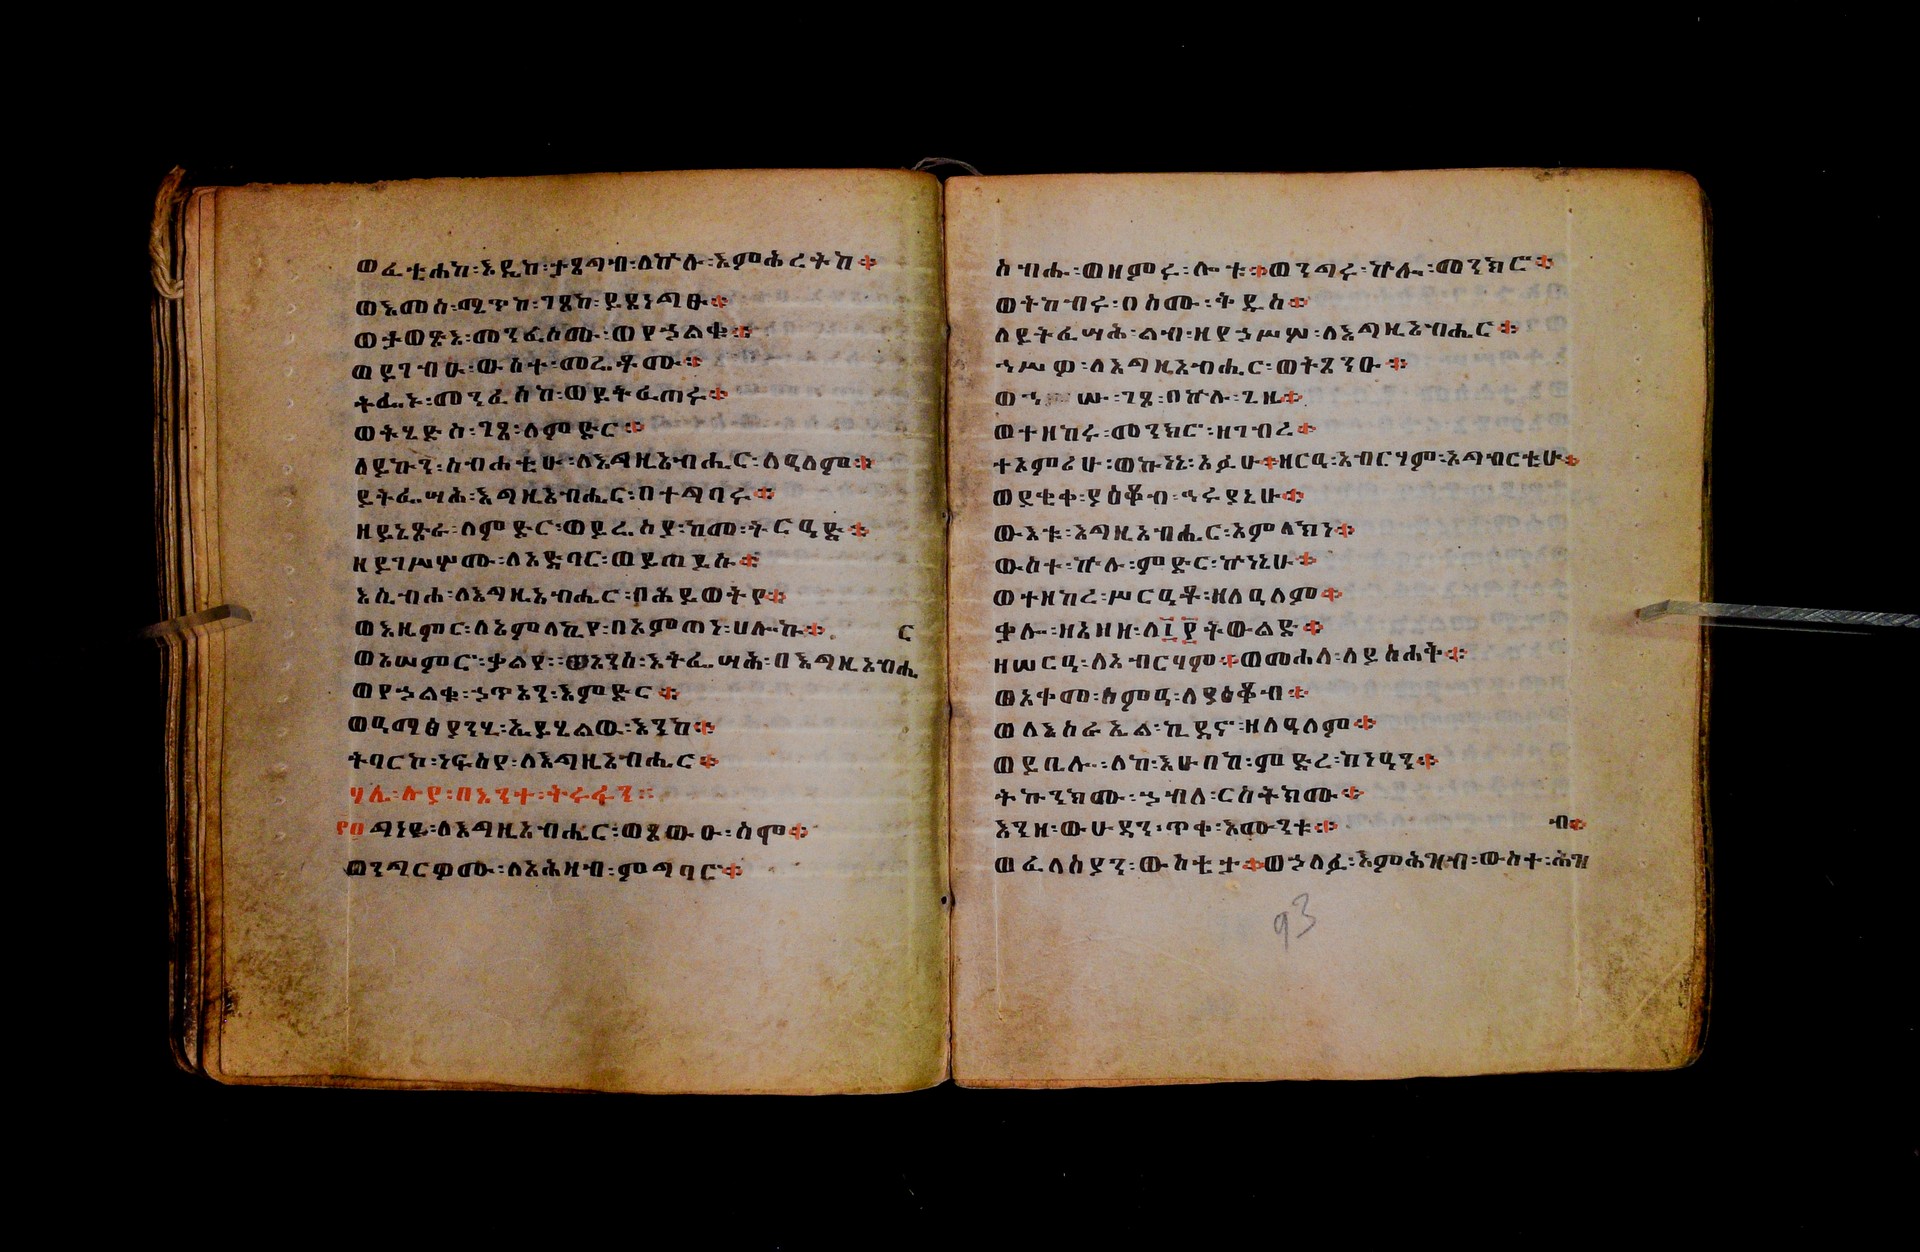 ወፈቲሐከ፡እዴከ፡ታጸግብ፡ለኵሉ፡እምሕረትከ።
ወእመሰ፡ሜጥከ፡ገጸከ፡ይደነግፁ።
ወታወጽእ፡መንፈሶሙ፡ወየኃልቁ።
ወይገብኡ፡ውስተ፡መሬቶሙ።
ትፌኑ፡መንፈሰከ፡ወይትፈጠሩ።
ወትሄድስ፡ገጸ፡ለምድር።
ለይኩን፡ስብሐቲሁ፡ለእግዚአብሔር፡ለዓለም።
ይትፌሣሕ፡እግዚአብሔር፡በተግባሩ።
ዘይኔጽራ፡ለምድር፡ወይሬስያ፡ከመ፡ትርዓድ።
ዘይገሥሦሙ፡ለአድባር፡ወይጠይሱ።
እሴብሐ፡ለእግዚአብሔር፡በሕይወትየ።
ወእዚምር፡ለአምላኪየ፡በአምጣነ፡ሀሎኩ።
ወአሠምር፡ቃልየ፡ወአንሰ፡እትፌሣሕ፡በእግዚአብሔር
ወየኃልቁ፡ኃጥኣን፡እምድር።
ወዓማፅያንሂ፡ኢይሄልው፡እንከ።
ትባርከ፡ነፍስየ፡ለእግዚአብሔር።
ሃሌ፡ሉያ፡በእንተ፡ትሩፋን።
፻፬ግነዩ፡ለእግዚአብሔር፡ወጸውዑ፡ስሞ።
ወንግርዎሙ፡ለአሕዛብ፡ምግባር።
ስብሑ፡ወዘምሩ፡ሎቱ።ወንግሩ፡ኵሎ፡መንክሮ።
ወትከብሩ፡በስሙ፡ቅዱስ።
ለይትፈሣሕ፡ልብ፡ዘየኃሥሦ፡ለእግዚአብሔር።
ኅሥዎ፡ለእግዚአብሔር፡ወትጸንዑ።
ወኅሡ፡ገጸ፡በኵሉ፡ጊዜ።
ወተዘከሩ፡መንክሮ፡ዘገብረ።
ተአምረሁ፡ወኵነኔ፡አፉሁ።ዘርዓ፡አብርሃም፡አግብርቲሁ።
ወደቂቀ፡ያዕቆብ፡ኅሩያኒሁ።
ውእቱ፡እግዚአብሔር፡አምላክነ።
ውስተ፡ኵሉ፡ምድር፡ኵነኔሁ።
ወተዘከረ፡ሥርዓቶ፡ዘለዓለም።
ቃሎ፡ዘአዘዘ፡ለ፲፻ትውልድ።
ዘሠርዓ፡ለአብርሃም።ወመሐለ፡ለይስሐቅ።
ወአቀመ፡ስምዓ፡ለያዕቆብ።
ወለእስራኤል፡ኪዳኖ፡ዘለዓለም።
ወይቤሎ፡ለከ፡እሁበከ፡ምድረ፡ከነዓን።
ትኩንክሙ፡ኃብለ፡ርስትክሙ።
እንዘ፡ውሁዳን፡ጥቀ፡እሙንቱ።
ወፈላስያን፡ውስቴታ።ወኃለፉ፡እምሕዝብ፡ውስተ፡ሕዝብ።
93